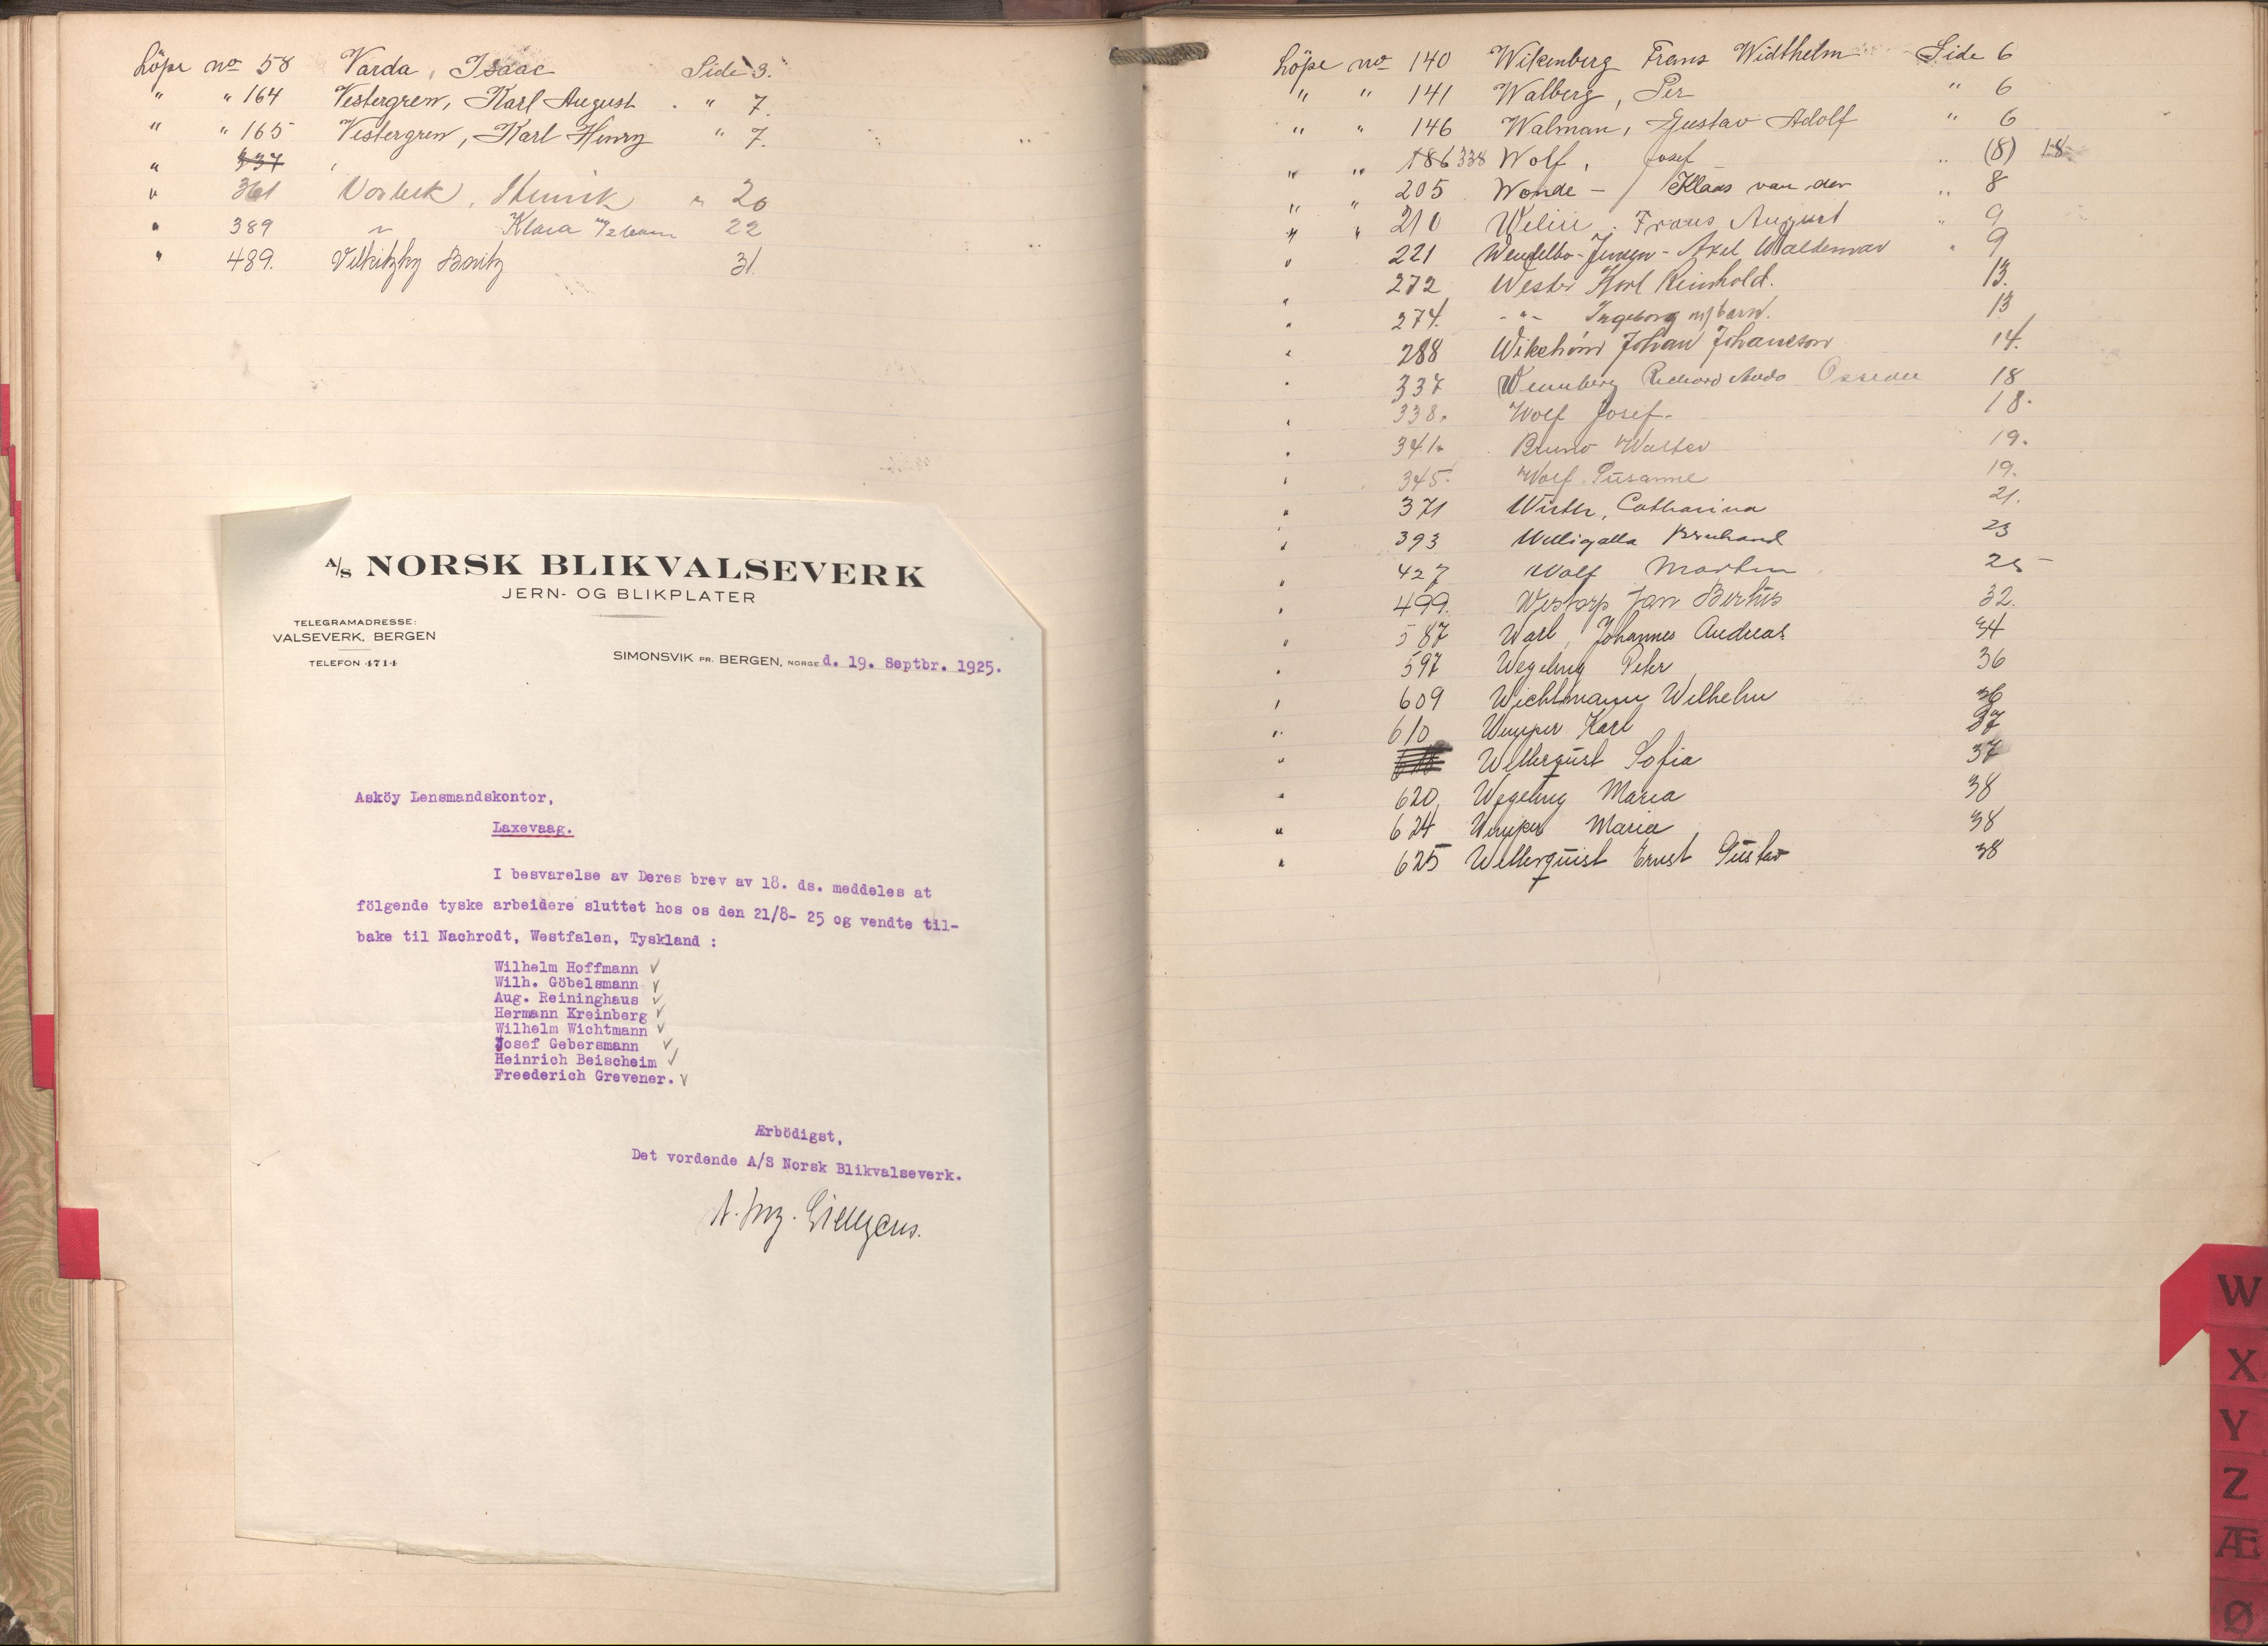 Löpe no 58 Varda, Isaac Side 3.
" " 164 Vestergren, Karl August . " 7.
" " 165 Vestergren, Karl Henry " 7.
" 337
" 361 Vorbeck, Henrik " 20
" 389 " Klara m/2 barn 22
" 489. Moritz 31.
A/S NORSK BLIKVALSEVERK
JERN- OG BLIKPLATER
TELEGRAMADRESSE:
VALSEVERK, BERGEN
TELEFON 4714
SIMONSVIK PR. BERGEN, NORGE d. 19. Septbr. 1925.
Asköy Lensmandskontor,
Laxevaag.
I besvarelse av Deres brev av 18. ds. meddeles at
fölgende tyske arbeidere sluttet hos os den 21/8- 25 og vendte til-
bake til Nachrodt, Westfalen, Tyskland :
Wilhelm Hoffmann ✓
Wilh. Göbelsmann ✓
Aug. Reininghaus ✓
Hermann Kreinberg ✓
Wilhelm Wichtmann ✓
Josef Gebersmann ✓
Heinrich Beischeim ✓
Freederich Grevener. ✓
Ærbödigst,
Det vordende A/S Norsk Blikvalseverk.
Löpe no 140 Wikenberg Frans Widthelm Side 6
" " 141 Walberg, Per " 6
" " 146 Walman, Gustav Adolf " 6
" " 186 338 Wolf, Josef " (8) 18
" " 205 Wonde - / Klaas van der " 8
" " 210 Frans August " 9
" 221 Wendelbo-Jensen - Axel Waldemar " 9
" 272 Wester Karl Reinhold. 13.
" 274. - " - Ingeborg m/ barn. 13
" 288 Wikström Johan Johaneson 14.
" 337 Wennberg 18
" 338. Wolf Josef. 18.
" 341. Bruno Walter 19.
" 345. Wolf Susanne 19.
" 371 Wirth, Catharina 21.
" 393 Willigalla 23
" 427 Wolf Martin 25
" 499. Westorp Jan Bertus 32.
" 587 Warl, Johannes Andreas 34
" 597 Wegeling Peter 36
" 609 Wichtmann Wilhelm 36
" 610 Karl 37
" Wetterquist Sofia 37
" 620 Wegeling Maria 38
" 624 Maria 38
" 625 Wetterquist Ernst Gustav 38
W
X
Y
Z
Æ
Ø